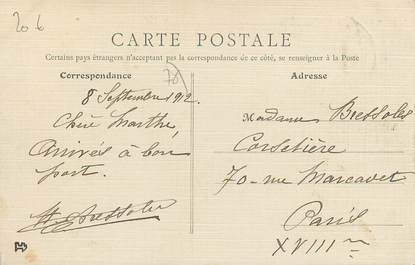 20 b
CARTE POSTALE
Certains pays étrangers n'acceptant pas la correspondance de ce côté, se renseigner à la Poste
78
Correspondance
8 Septembre 1912.
Chère Marthe,
Arrivés à bon
port.
Bressoles
Adresse
Madame Bressoles
Corsetière
70 rue Marcadet
Paris
XVIII me